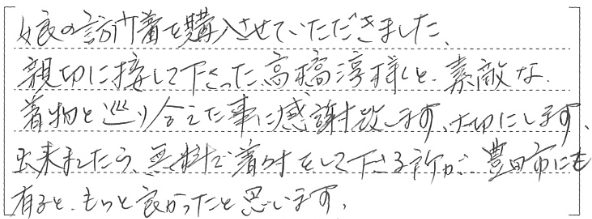 娘の訪問着を購入させていただきました、
親切に接して下さった高橋淳様と、素敵な
着物と巡り会えた事に感謝致します、大切にします、
出来ましたら、無料で着付をして下さる所が豊田市にも
有ると、もっと良かったと思います、